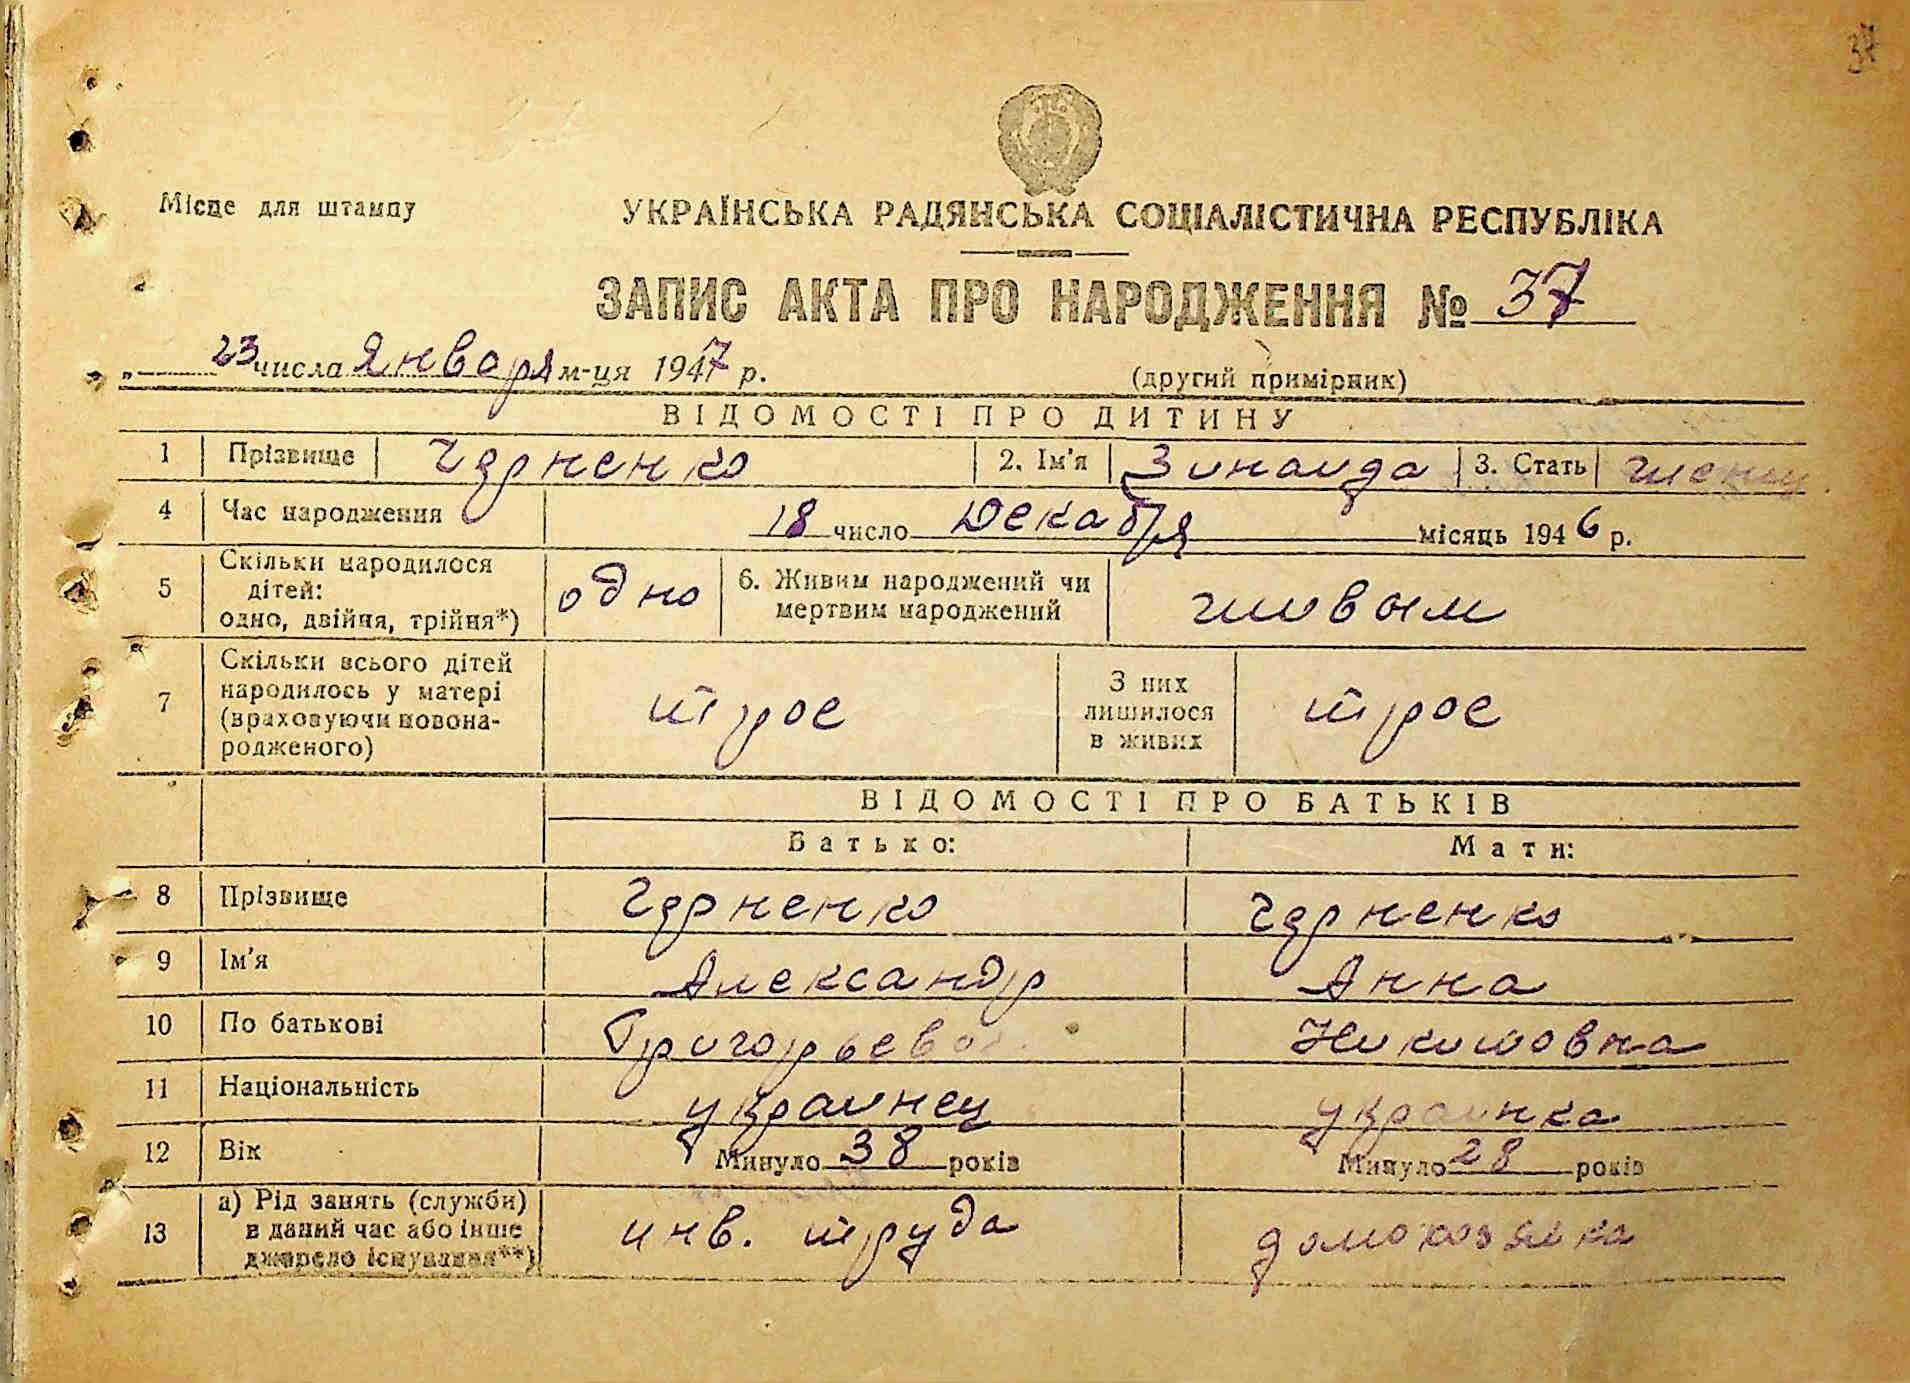 37
Місце для штампу
УКРАЇНСЬКА РАДЯНСЬКА СОЦІАЛІСТИЧНА РЕСПУБЛІКА
ЗАПИС АКТА ПРО НАРОДЖЕННЯ № 37
„ 23 числа Января м-ця 1947 р.
(другий примірник)
ВІДОМОСТІ ПРО ДИТИНУ
1 Прізвище Черненко 2. Ім'я Зинаида 3. Стать женщ.
4 Час народження 18 число Декабря місяць 1946 р.
5 Скільки народилося
дітей:
одно, двійня, трійня*) одно 6. Живим народжений чи
мертвим народжений живым
7 Скільки всього дітей
народилось у матері
(враховуючи новона-
родженого) трое З них
лишилося
в живих трое
ВІДОМОСТІ ПРО БАТЬКІВ
Батько: Мати:
8 Прізвище Черненко Черненко
9 Ім'я Александр Анна
10 По батькові Григорьевич
11 Національність украинец украинка
12 Вік Минуло 38 років Минуло 28 років
13 а) Рід занять (служби)
в даний час або інше
джерело існування**) инв. труда домохозяйка